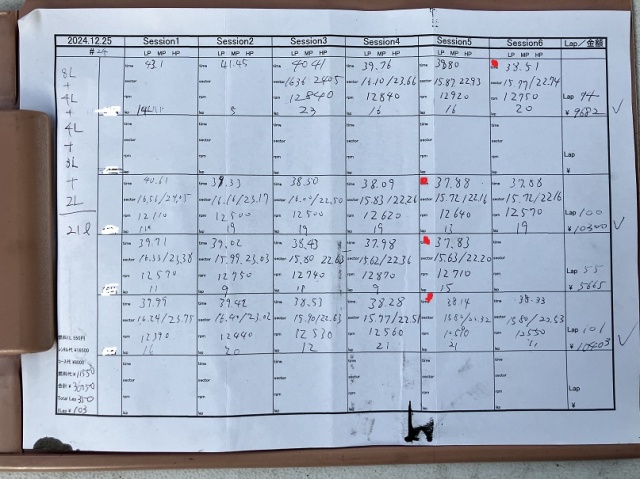 2024.12.25 Session1 Session2 Session3 Session4 Session5 Session6 Lap/金額
#24 LP MP HP LP MP HP LP MP HP LP MP HP LP MP HP LP MP HP
8L
+
4L
+
4L
+
3L
+
2L
21ℓ
time 43.1 time 41.45 time 40.41 time 39.76 time 39.80 time 38.51
sector sector sector 16.36 24.05 sector 16.10/23.66 sector 15.87 22.93 sector 15.77/22.74
rpm rpm rpm 12840 rpm 12840 rpm 12920 rpm 12750 Lap 94
lap lap 5 lap 23 lap 16 lap 16 lap 20 ¥ 9682
time time time time time time
sector sector sector sector sector sector
rpm rpm rpm rpm rpm rpm Lap
lap lap lap lap lap lap ¥
time 40.61 time 39.33 time 38.50 time 38.09 time 37.88 time 37.88
sector 16.56/24.05 sector 16.16/23.17 sector 16.00/22.50 sector 15.83/22.26 sector 15.72/22.16 sector 15.72/22.16
rpm 12110 rpm 12500 rpm 12500 rpm 12620 rpm 12640 rpm 12570 Lap 100
lap lap 19 lap 19 lap 19 lap 13 lap 19 ¥ 10300
time 39.71 time 39.02 time 38.43 time 37.98 time 37.83 time
sector 16.33/23.38 sector 15.99/23.03 sector 15.80 22.63 sector 15.62/22.36 sector 15.63/22.20 sector
rpm 12570 rpm 12750 rpm 12740 rpm 12870 rpm 12710 rpm Lap 55
lap 11 lap 9 lap 18 lap 9 lap 15 lap ¥ 5665
time 39.99 time 39.42 time 38.53 time 38.28 time 38.14 time 38.33
sector 16.24/23.75 sector 16.40/23.02 sector 15.90/22.63 sector 15.77/22.51 sector 15.80/22.32 sector 15.80/22.53
rpm 12390 rpm 12440 rpm 12530 rpm 12560 rpm 12590 rpm 12550 Lap 101
lap 16 lap 20 lap 12 lap 21 lap 21 lap 11 ¥ 10403
time time time time time time
sector sector sector sector sector sector
rpm rpm rpm rpm rpm rpm Lap
lap lap lap lap lap lap ¥
燃料代 ¥ 11550
Total Lap 350
1Lap ¥ 103